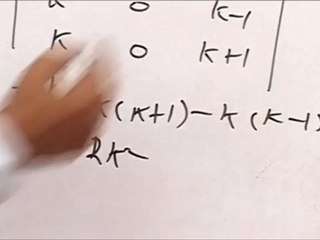 0 K-1
K 0 K+1
K(K+1) - K(K-1)
2K²